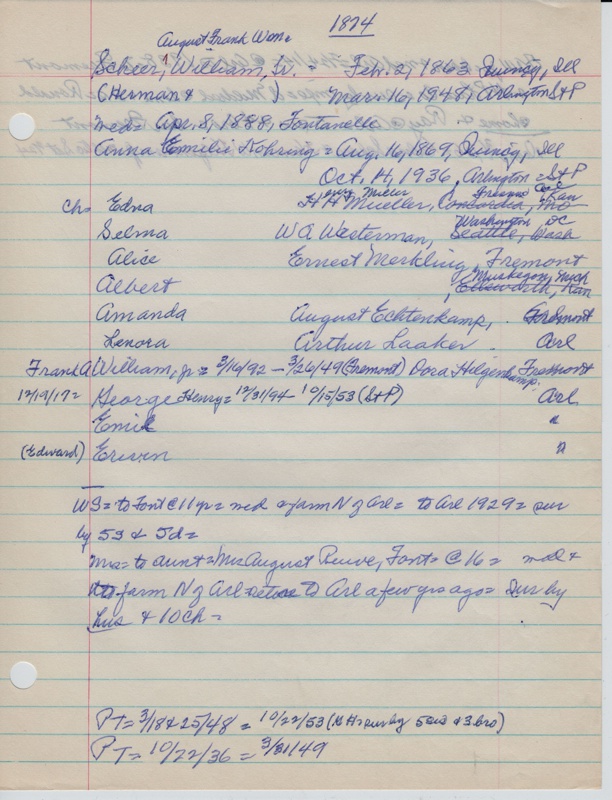 1874
August Frank Wm=
Scheer, William, Sr. = Feb. 2, 1863 Quincy, Ill
(Herman & ) Mar. 16, 1948, Arlington S+P
med= Apr. 8, 1888, Fontanelle
Anna Emilie Kohring = Aug. 16, 1869, Quincy, Ill
Oct. 14, 1936, Arlington = S+P
Ch= Edna H H Mueller, Concordia, Mo
Washington DC
Selma W A Westerman, Seattle, Wash
Alice Ernest Merkling, Fremont
Muskegon, Mich
Albert , Ellsworth, Kan
Amanda August Echtenkamp, Fremont
Lenora Arthur Laaker Arl
Frank A William, jr = 3/16/92 - 3/26/49 (Fremont) Dora Hilgenkamp Fremont
12/19/17= George Henry= 12/31/94 - 10/15/53 (S+P) Arl
Emil "
(Edward) Erwin "
WS= to Font @ 11 yr = med & farm N of Arl= to Arl 1929 = sur
by 5S & 5d=
Mrs= to aunt= Mrs August Ruwe, Font= @ 16 = med &
to farm N of Arl = retire to Arl a few yrs ago = sur by
hus & 10 Ch =
PT= 3/18 & 25/48 = 10/22/53 ( sur by 5 sis & 3 bro)
PT= 10/22/36 = 3/31/49